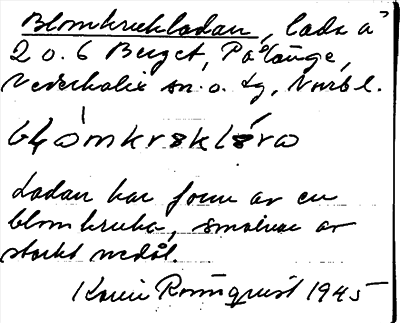 Blomkrukladan, lada å
2 o. 6 Berget, Pålänge,
Nederkalix sn. o. tg, Nordb.l.
blómkrukló̀ra
Ladan har form av en
blomkruka, smalnar av
starkt nedåt.
Karin Rönnquist 1945